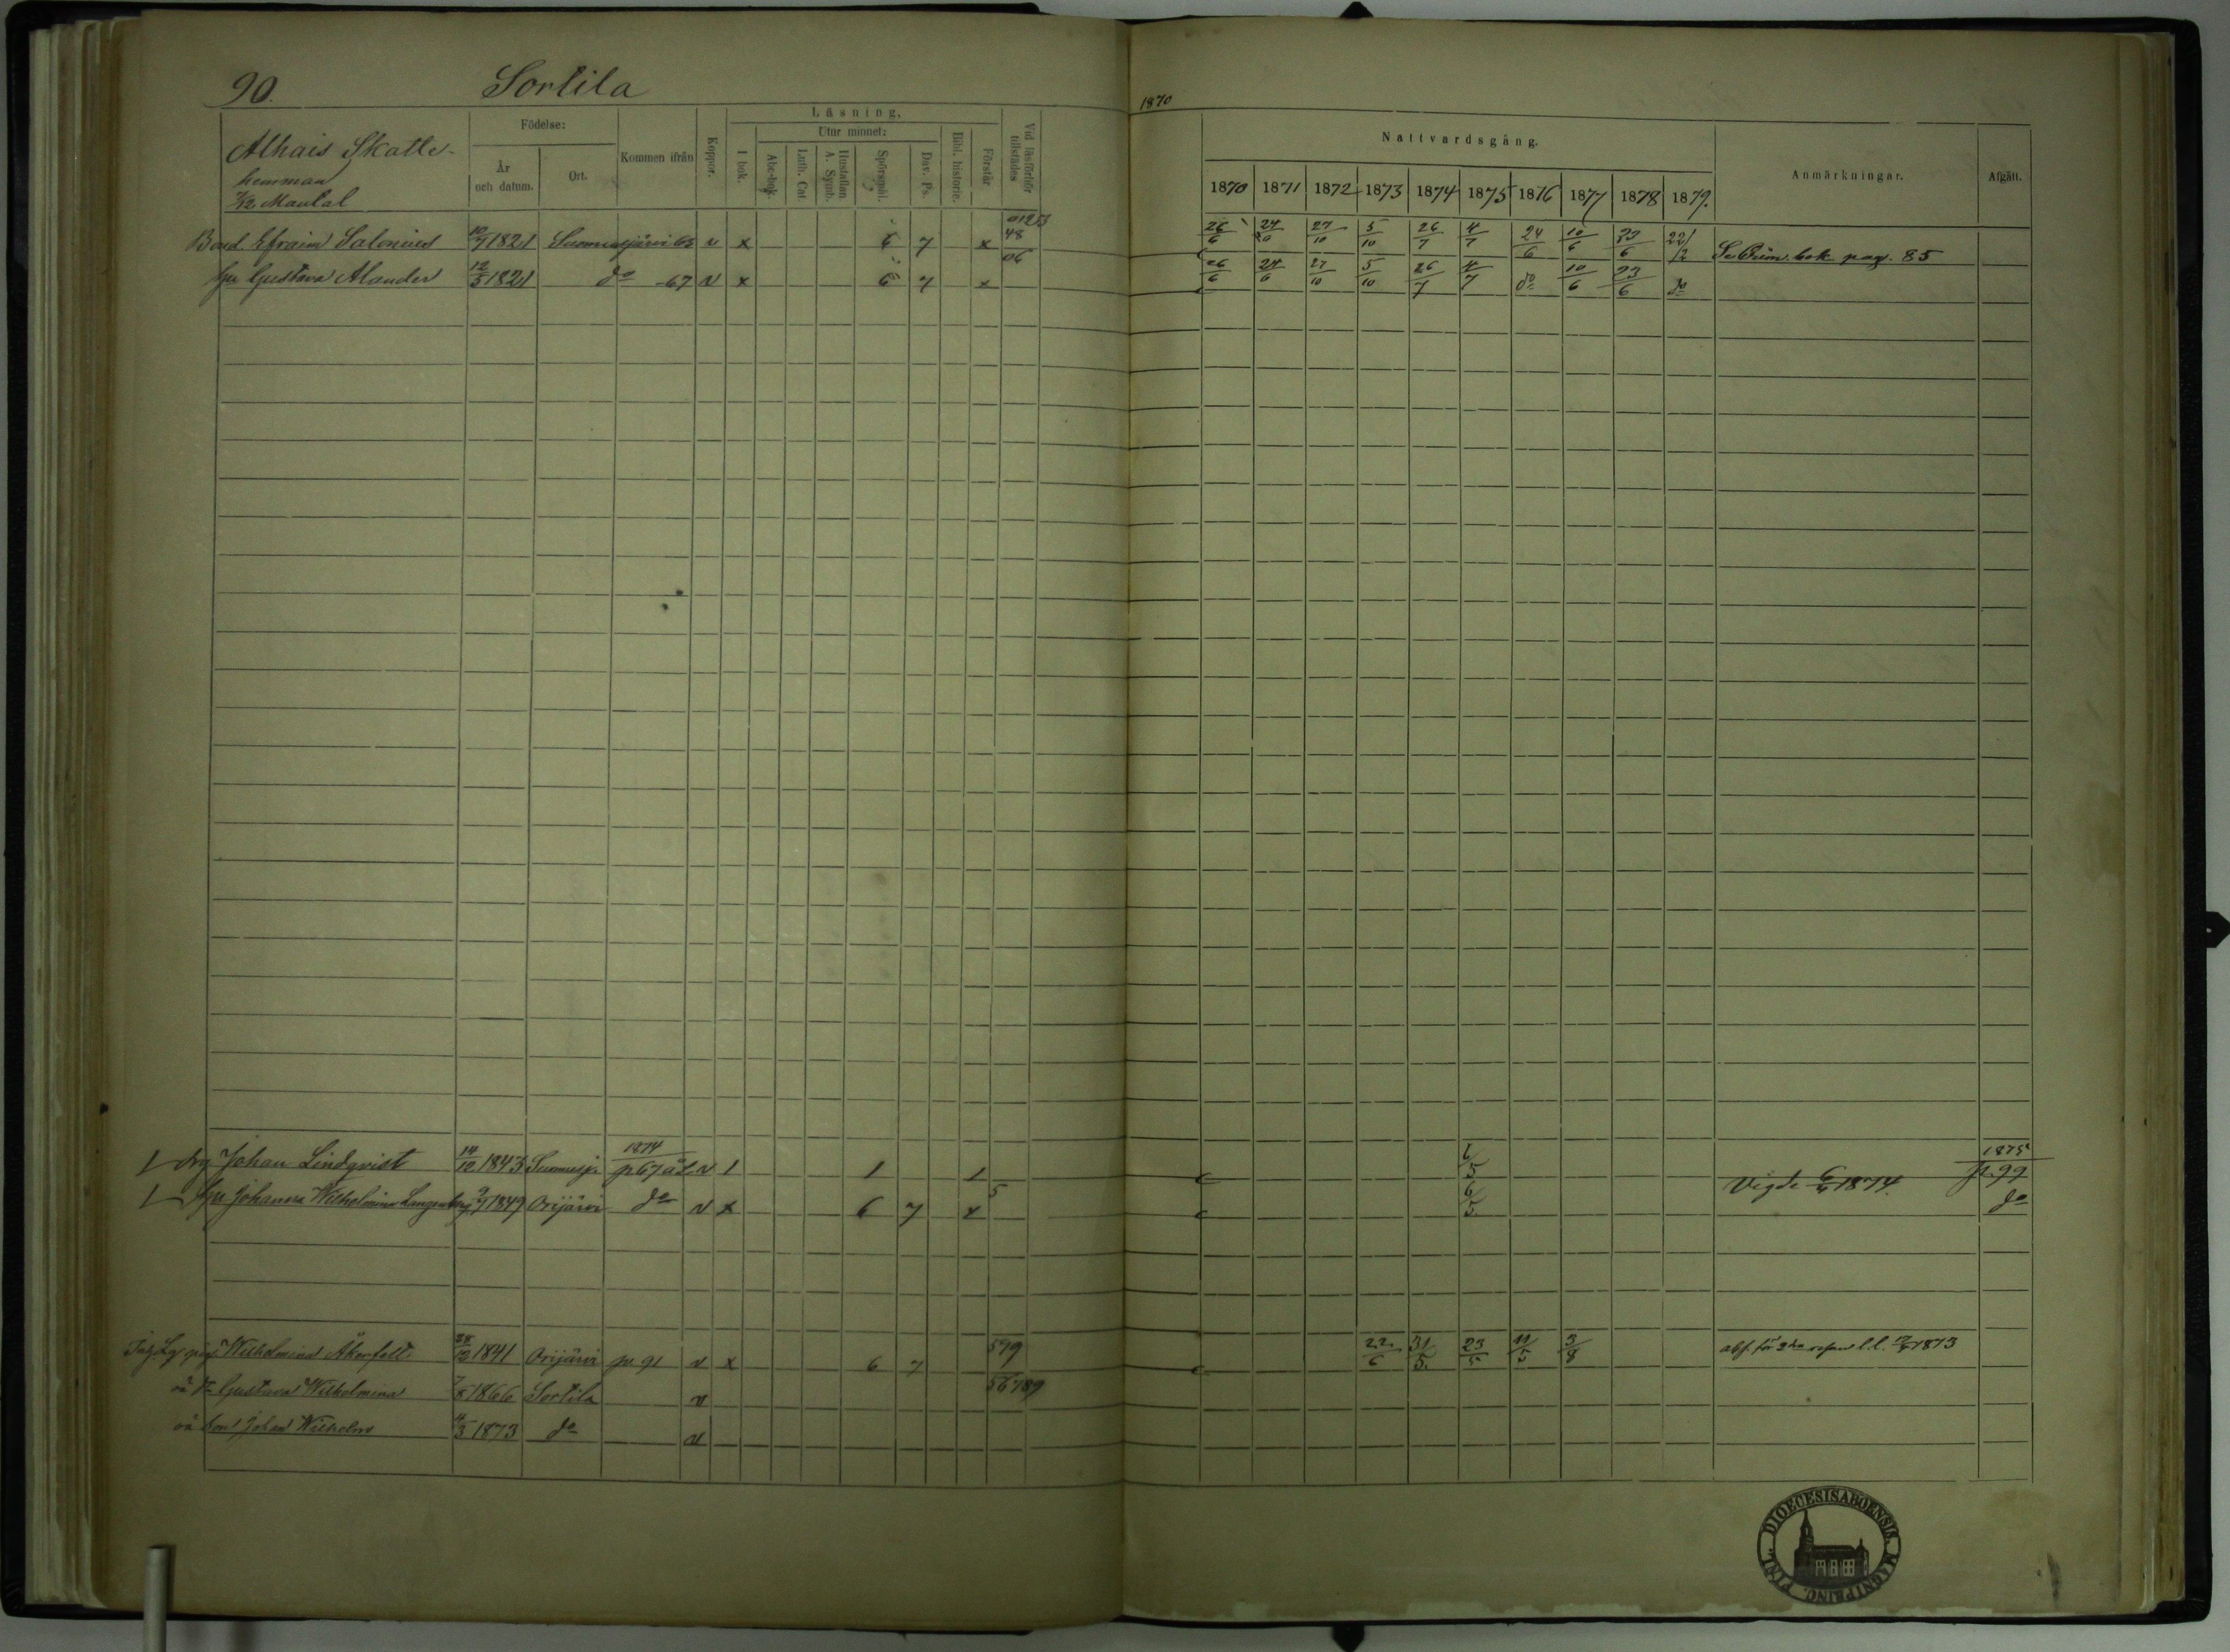 90. Sortila
1870
Alhais Skatte-
hemman
7/12 Mantal
Födelse:
År
och datum.
Ort.
Kommen ifrån
Koppor.
Läsning.
I bok.
Utur minnet:
Abc-bok.
Luth. Cat
Hustaflan
A. Symb.
Spörsmål.
Dav. Ps.
Bibl. historie.
Förstår
Vid läsförhör
tillstädes
Nattvardsgång.
1870 1871 1872 1873 1874 1875 1876 1877 1878 1879.
Anmärkningar.
Afgått.
Bond. Efraim Salonius 10/7 1821 Suomusjärvi 63 v x 6 7 x 48 26/6 24/6 27/10 5/10 26/7 4/7 24/6 10/6 23/6 22/12 Se Crim. bok pag. 85
hu Gustava Alander 12/5 1821 do 67 v x 6 7 x 06 26/6 24/6 27/10 5/10 26/7 4/7 do 10/6 23/6 do
drg Johan Lindqvist 14/12 1843 Suomusj. 1874 p 67 v 1 1 1 6/5 1875 p. 99
hu Johanna Wilhelmina 1849 Orijärvi do v x 6 7 x 5 6/5 Vigde 6/4 1874. do
Wilhelmina Åkerfelt 28/12 1841 Orijärvi p. 91 v x 6 7 579 22/6 31/5 23/5 11/5 3/8 1873
oä dr Gustava Wilhelmina 1866 Sortila v 56789
oä son Johan Wilhelm 4/3 1873 do v
DIOECESIS ABOENSIS MAGNI PRINC. FINL.